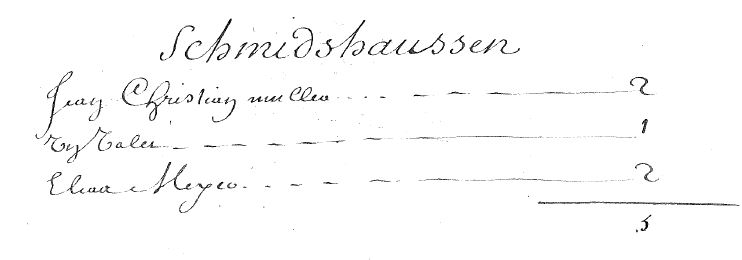 Schmidshaussen
Jean Christian muller 2
1
Elias Meyer 2
5